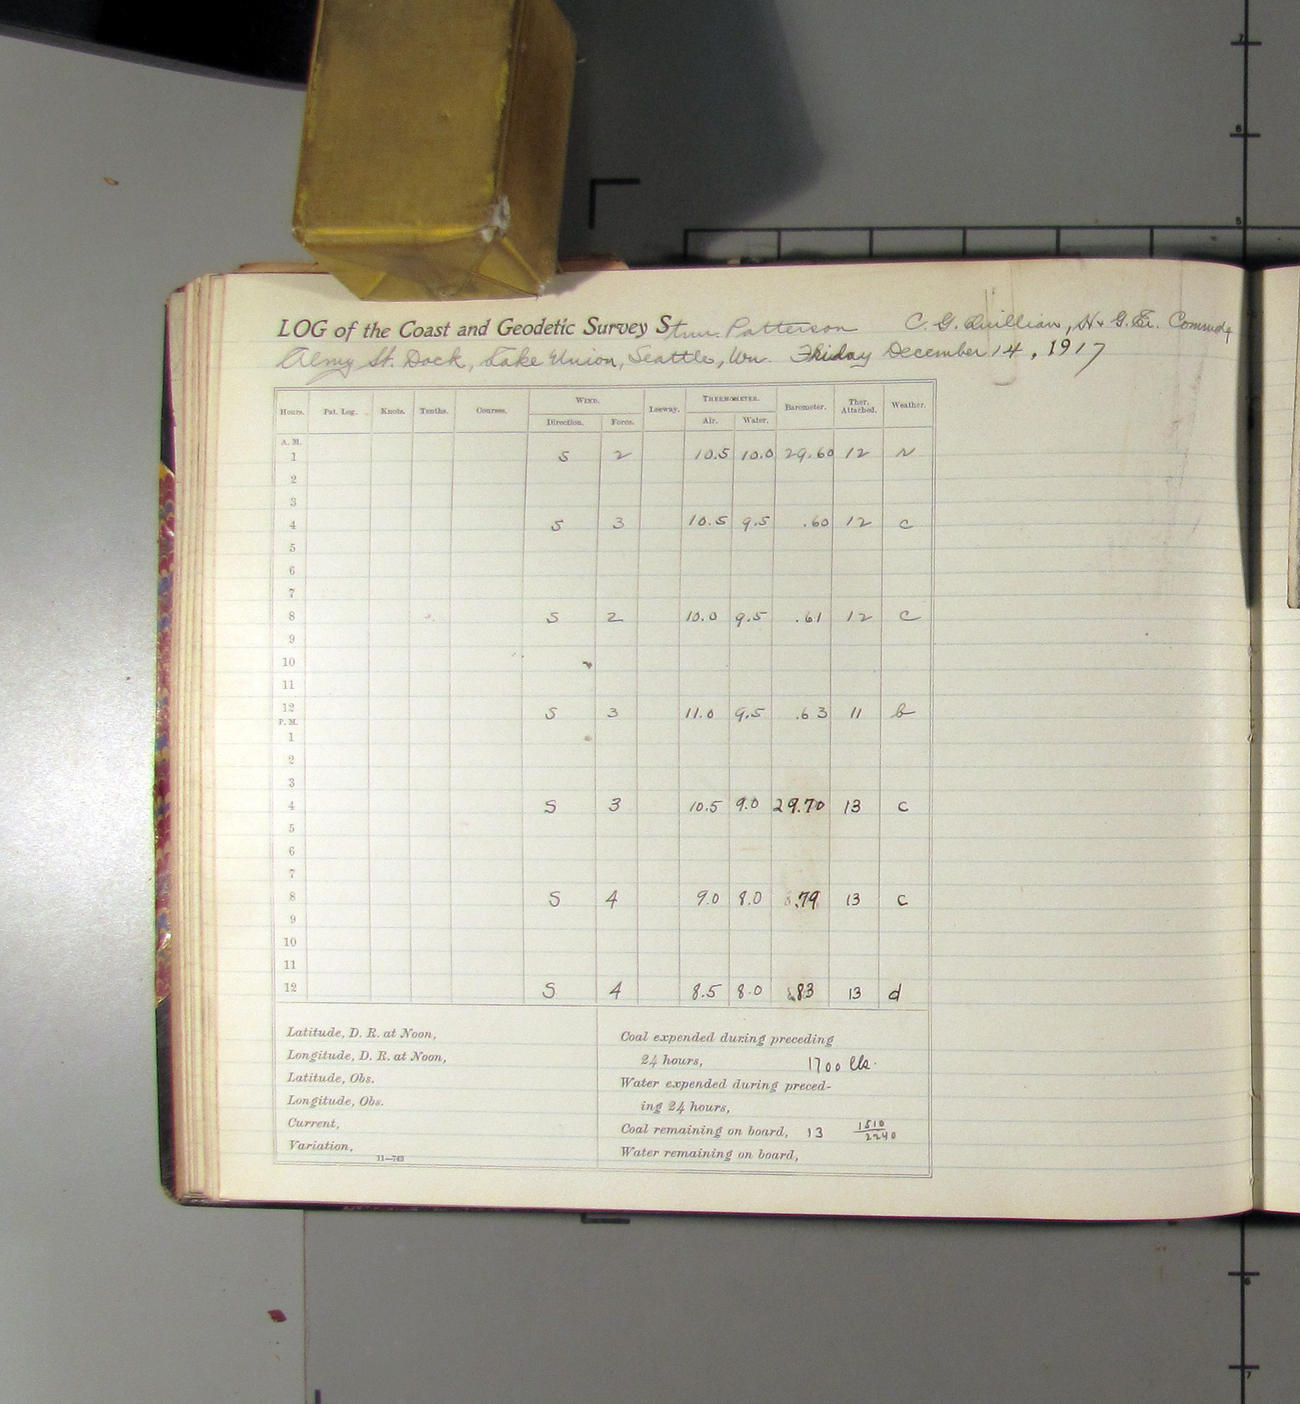 LOG of the Coast and Geodetic Survey Stmr. Patterson C. G. Quillian, H. & G. En. Commdg
St. Dock, Lake Union, Seattle, Wn. Friday December 14, 1917
Hours. Pat. Log. Knots. Tenths. Courses. WIND. Leeway. THERMOMETER. Barometer. Ther. Attached. Weather.
Direction. Force. Air. Water.
A. M.
1 S 2 10.5 10.0 29.60 12
2
3
4 S 3 10.5 9.5 .60 12 c
5
6
7
8 S 2 10.0 9.5 .61 12 c
9
10
11
12 S 3 11.0 9.5 .63 11 b
P. M.
1
2
3
4 S 3 10.5 9.0 29.70 13 c
5
6
7
8 S 4 9.0 8.0 .79 13 c
9
10
11
12 S 4 8.5 8.0 .83 13 d
Latitude, D. R. at Noon,
Longitude, D. R. at Noon,
Latitude, Obs.
Longitude, Obs.
Current,
Variation,
11—743
Coal expended during preceding
24 hours, 1700 lbs.
Water expended during preced-
ing 24 hours,
Coal remaining on board, 13 1510/2240
Water remaining on board,
7
6
5
6
7